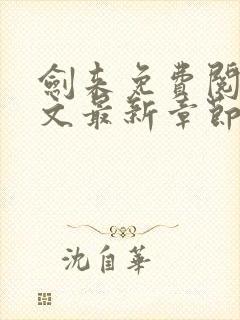 劍来免費閱
文最新章節
沈自華